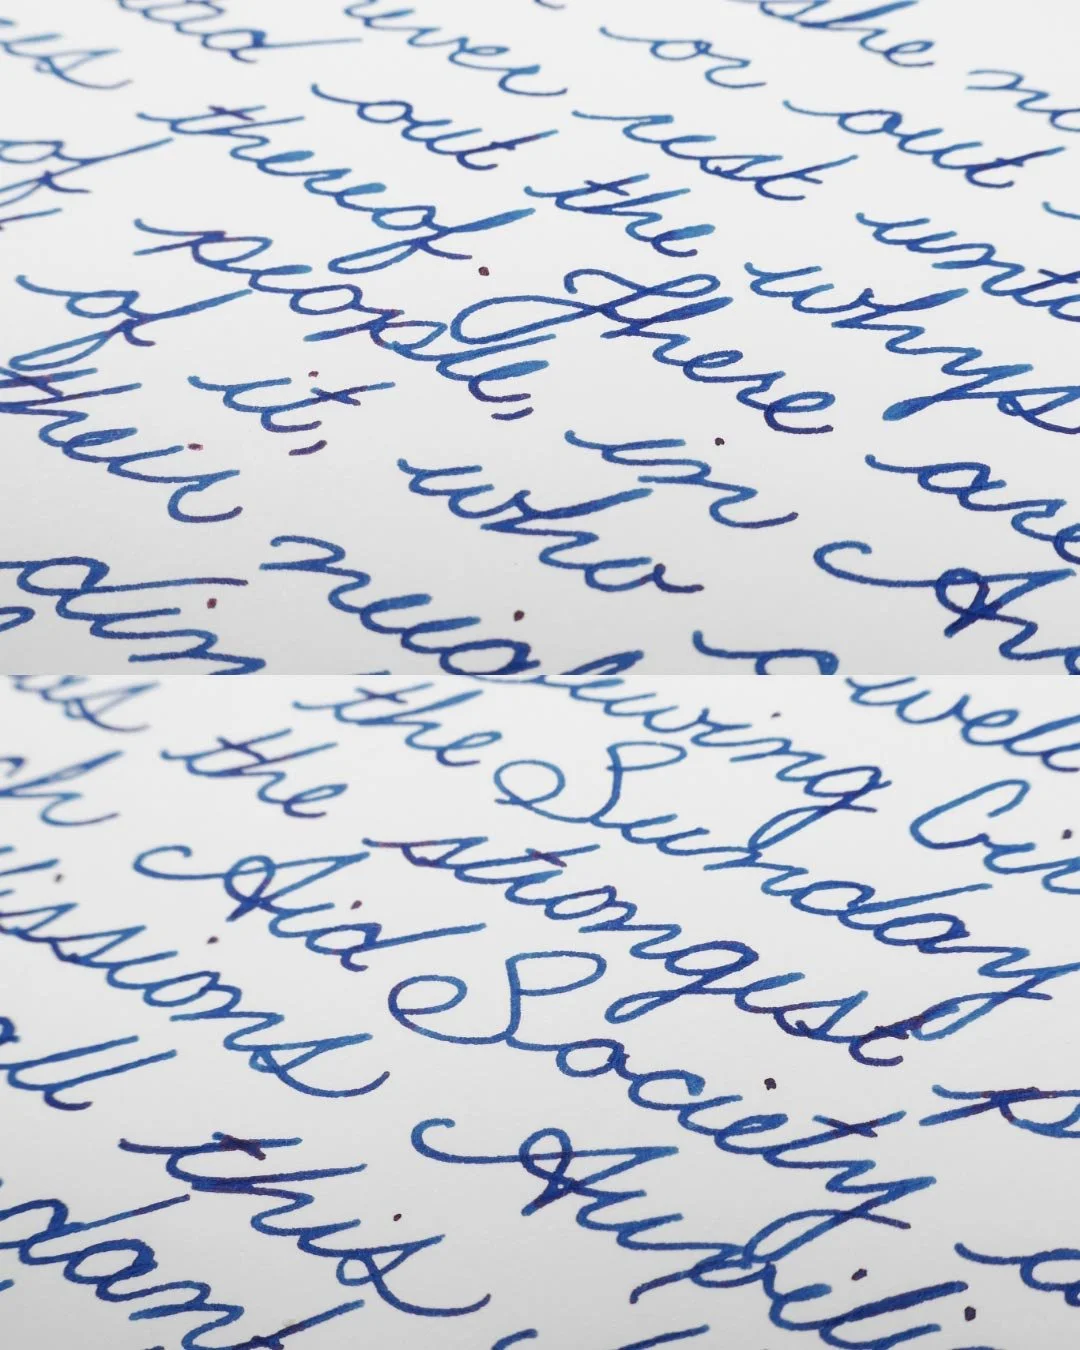 she no
or out
ever rest unti
out the whys
us thereof. There are
of people, in
of it, who
their neig
well
the Sunday
the strongest
Aid Society
issions Auxili
all this